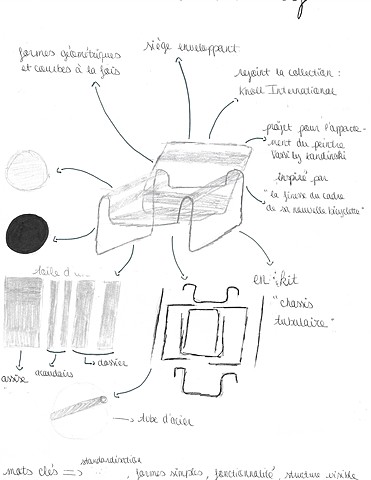 formes géométriques
et courbes à la fois
siège enveloppant
rejoint la collection :
Knoll International
projet pour l'apparte-
ment du peintre
Vassily Kandinski
inspiré par
"la finesse du cadre
de sa nouvelle bicyclette"
en kit
"chassis
tubulaire"
assise
accoudoirs
dossier
tube d'acier
mots clés => standardisation, formes simples, fonctionnalité, structure visible